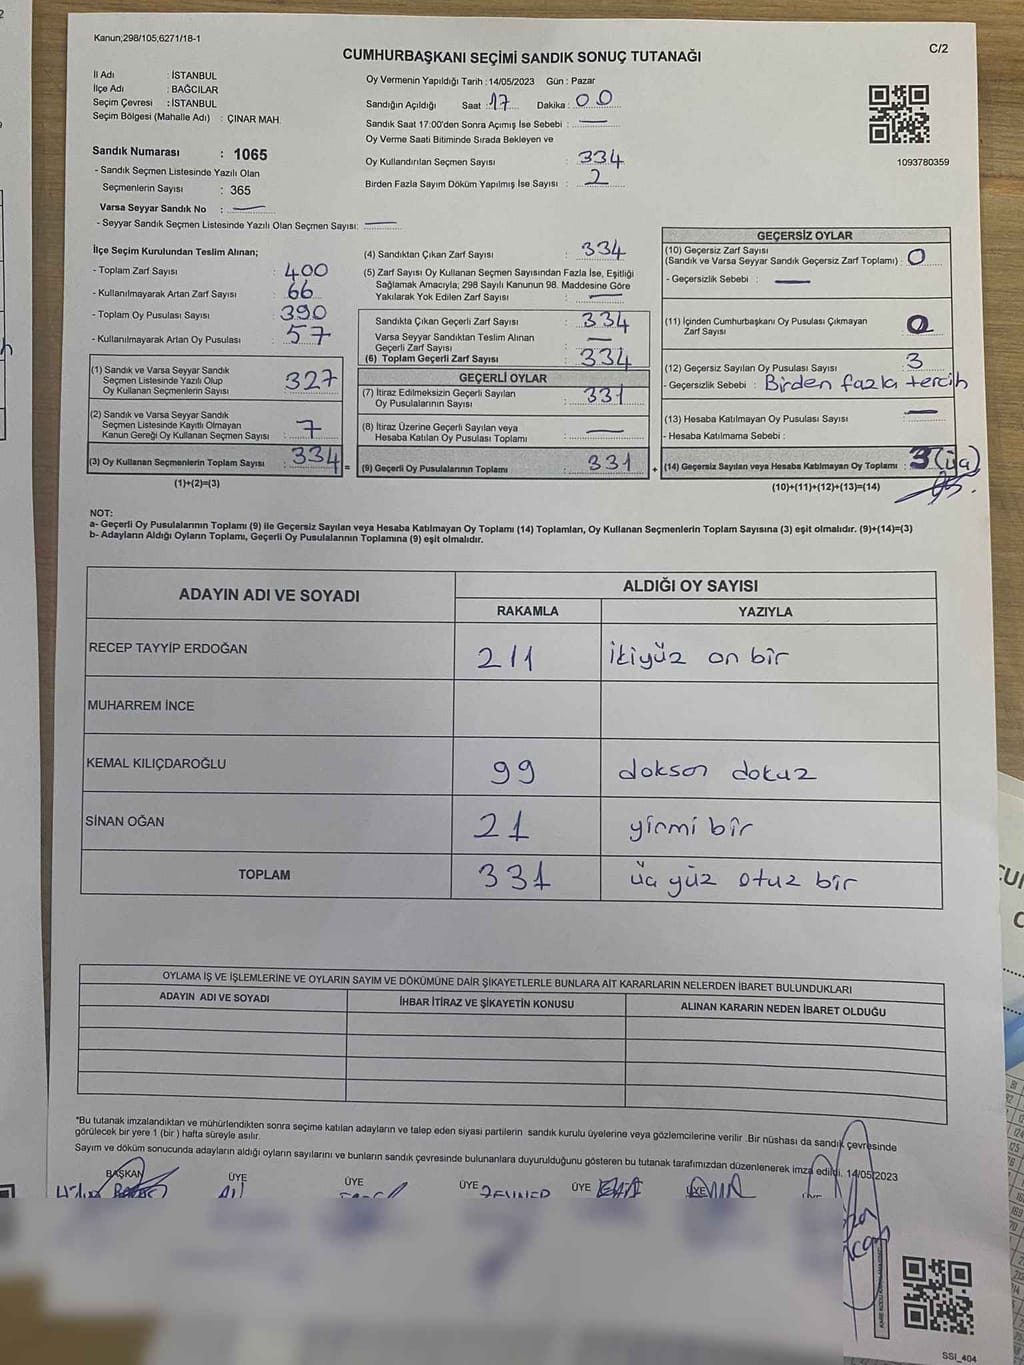 Kanun;298/105;6271/18-1
C/2
CUMHURBAŞKANI SEÇİMİ SANDIK SONUÇ TUTANAĞI
İl Adı : İSTANBUL
İlçe Adı : BAĞCILAR
Seçim Çevresi : İSTANBUL
Seçim Bölgesi (Mahalle Adı) : ÇINAR MAH.
Sandık Numarası : 1065
- Sandık Seçmen Listesinde Yazılı Olan
Seçmenlerin Sayısı : 365
Varsa Seyyar Sandık No : —
- Seyyar Sandık Seçmen Listesinde Yazılı Olan Seçmen Sayısı: —
Oy Vermenin Yapıldığı Tarih : 14/05/2023 Gün : Pazar
Sandığın Açıldığı Saat : 17 Dakika : 00
Sandık Saat 17:00'den Sonra Açımış İse Sebebi : —
Oy Verme Saati Bitiminde Sırada Bekleyen ve
Oy Kullandırılan Seçmen Sayısı : 334
Birden Fazla Sayım Döküm Yapılmış İse Sayısı : 2
1093780359
İlçe Seçim Kurulundan Teslim Alınan;
- Toplam Zarf Sayısı : 400
- Kullanılmayarak Artan Zarf Sayısı : 66
- Toplam Oy Pusulası Sayısı : 390
- Kullanılmayarak Artan Oy Pusulası : 57
(1) Sandık ve Varsa Seyyar Sandık
Seçmen Listesinde Yazılı Olup
Oy Kullanan Seçmenlerin Sayısı : 327
(2) Sandık ve Varsa Seyyar Sandık
Seçmen Listesinde Kayıtlı Olmayan
Kanun Gereği Oy Kullanan Seçmen Sayısı : 7
(3) Oy Kullanan Seçmenlerin Toplam Sayısı : 334 =
(1)+(2)=(3)
(4) Sandıktan Çıkan Zarf Sayısı : 334
(5) Zarf Sayısı Oy Kullanan Seçmen Sayısından Fazla İse, Eşitliği
Sağlamak Amacıyla; 298 Sayılı Kanunun 98. Maddesine Göre
Yakılarak Yok Edilen Zarf Sayısı : —
Sandıkta Çıkan Geçerli Zarf Sayısı : 334
Varsa Seyyar Sandıktan Teslim Alınan
Geçerli Zarf Sayısı : —
(6) Toplam Geçerli Zarf Sayısı : 334
GEÇERLİ OYLAR
(7) İtiraz Edilmeksizin Geçerli Sayılan
Oy Pusulalarının Sayısı : 331
(8) İtiraz Üzerine Geçerli Sayılan veya
Hesaba Katılan Oy Pusulası Toplamı : —
(9) Geçerli Oy Pusulalarının Toplamı : 331 +
GEÇERSİZ OYLAR
(10) Geçersiz Zarf Sayısı
(Sandık ve Varsa Seyyar Sandık Geçersiz Zarf Toplamı) : 0
- Geçersizlik Sebebi : —
(11) İçinden Cumhurbaşkanı Oy Pusulası Çıkmayan
Zarf Sayısı : 0
(12) Geçersiz Sayılan Oy Pusulası Sayısı : 3
- Geçersizlik Sebebi : Birden fazla tercih
(13) Hesaba Katılmayan Oy Pusulası Sayısı : —
- Hesaba Katılmama Sebebi :
(14) Geçersiz Sayılan veya Hesaba Katılmayan Oy Toplamı : 3 (üç)
(10)+(11)+(12)+(13)=(14)
NOT:
a- Geçerli Oy Pusulalarının Toplamı (9) ile Geçersiz Sayılan veya Hesaba Katılmayan Oy Toplamı (14) Toplamları, Oy Kullanan Seçmenlerin Toplam Sayısına (3) eşit olmalıdır. (9)+(14)=(3)
b- Adayların Aldığı Oyların Toplamı, Geçerli Oy Pusulalarının Toplamına (9) eşit olmalıdır.
ADAYIN ADI VE SOYADI ALDIĞI OY SAYISI
RAKAMLA YAZIYLA
RECEP TAYYİP ERDOĞAN 211 ikiyüz on bir
MUHARREM İNCE
KEMAL KILIÇDAROĞLU 99 doksan dokuz
SİNAN OĞAN 21 yirmi bir
TOPLAM 331 üç yüz otuz bir
OYLAMA İŞ VE İŞLEMLERİNE VE OYLARIN SAYIM VE DÖKÜMÜNE DAİR ŞİKAYETLERLE BUNLARA AİT KARARLARIN NELERDEN İBARET BULUNDUKLARI
ADAYIN ADI VE SOYADI İHBAR İTİRAZ VE ŞİKAYETİN KONUSU ALINAN KARARIN NEDEN İBARET OLDUĞU
*Bu tutanak imzalandıktan ve mühürlendikten sonra seçime katılan adayların ve talep eden siyasi partilerin sandık kurulu üyelerine veya gözlemcilerine verilir .Bir nüshası da sandık çevresinde
görülecek bir yere 1 (bir ) hafta süreyle asılır.
Sayım ve döküm sonucunda adayların aldığı oyların sayılarını ve bunların sandık çevresinde bulunanlara duyurulduğunu gösteren bu tutanak tarafımızdan düzenlenerek imza edildi. 14/05/2023
BAŞKAN ÜYE ÜYE ÜYE ÜYE ÜYE
SSI_404